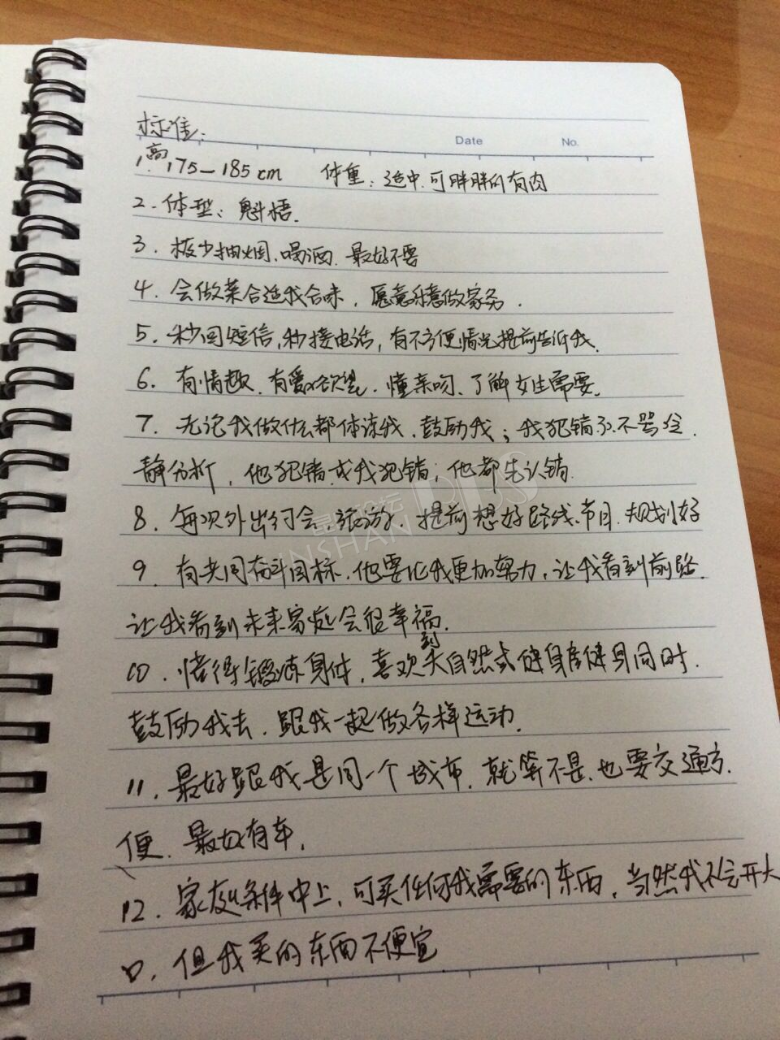 标准:
Date No.
1. 高175—185cm 体重: 适中.可胖胖的有肉
2. 体型: 魁梧.
3. 极少抽烟.喝酒. 最好不要
4. 会做菜合适我合味, 愿意乐意做家务.
5. 秒回短信,秒接电话, 有不方便情况提前告诉我.
6. 有情趣.有爱欲望.懂亲吻.了解女生需要.
7. 无论我做什么都体谅我.鼓励我; 我犯错了.不骂.冷
静分析, 他犯错或我犯错, 他都先认错.
8. 每次外出约会、旅游、提前想好路线.节目.规划好
9. 有共同奋斗目标.他要比我更加努力.让我看到前路.
让我看到未来家庭会很幸福.
10. 懂得锻炼身体, 喜欢到大自然或健身房健身同时.
鼓励我去.跟我一起做各样运动.
11. 最好跟我是同一个城市.就算不是.也要交通方
便.最好有车.
12. 家庭条件中上.可买任何我需要的东西. 当然我不会开大
口, 但我买的东西不便宜